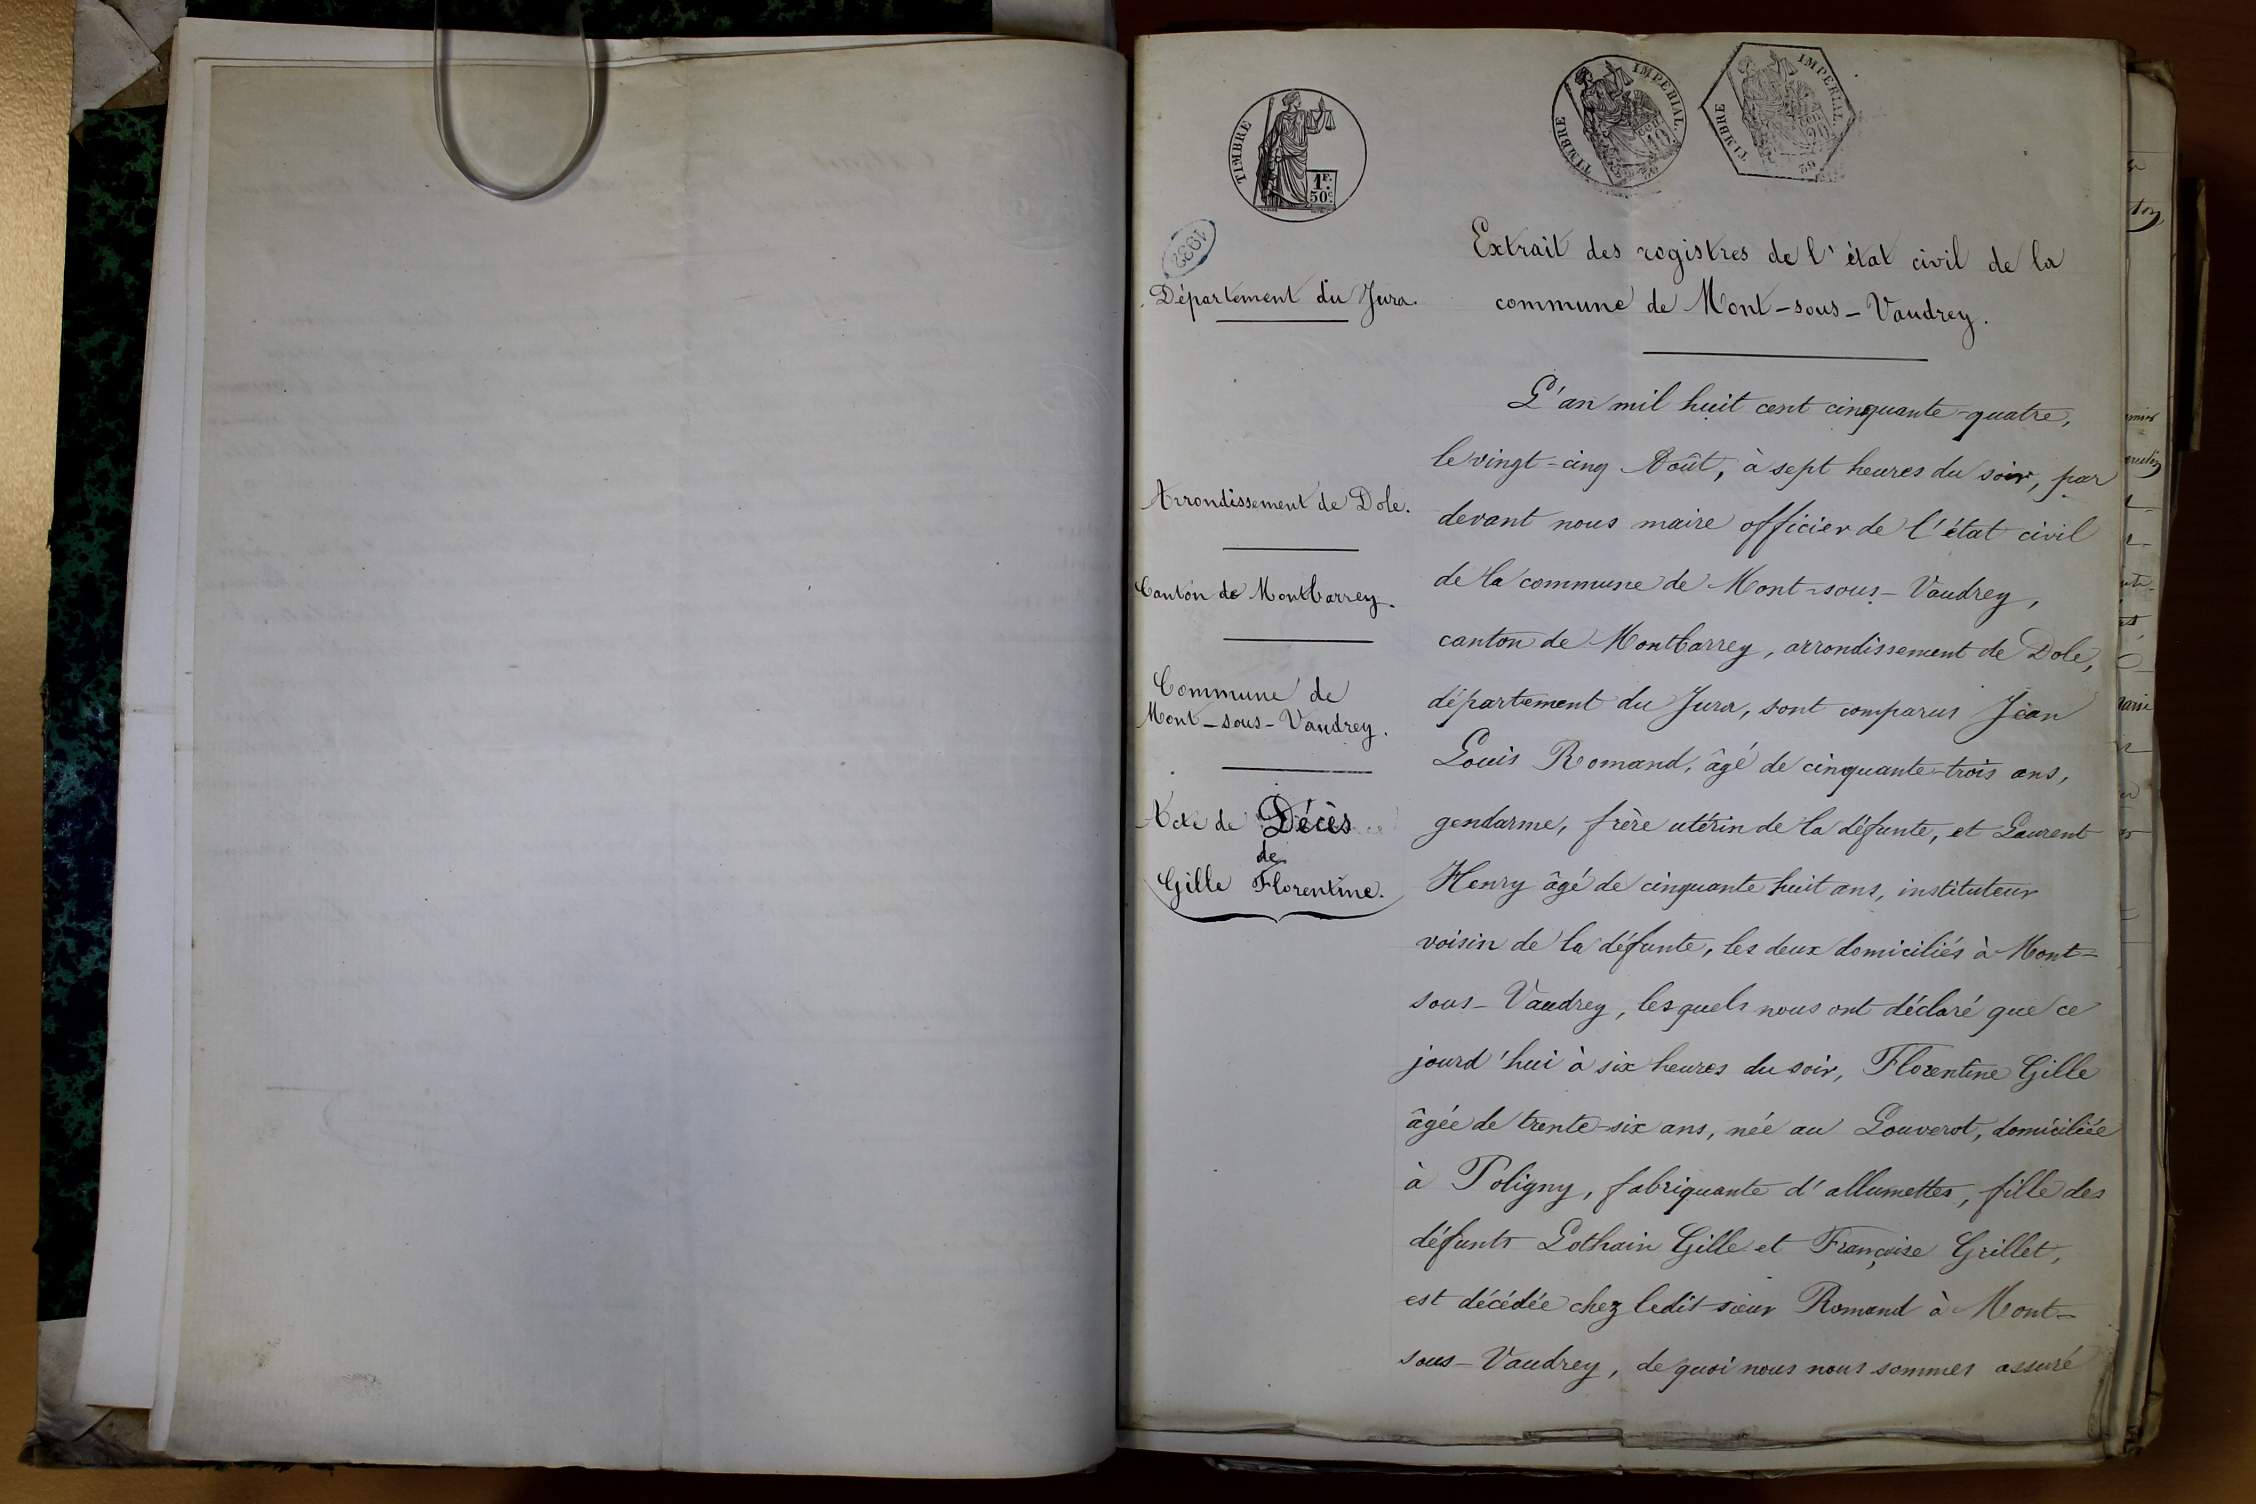 TIMBRE
1F.
50C.
TIMBRE IMPERIAL
TIMBRE IMPERIAL
1932
Extrait des registres de l'état civil de la
commune de Mont-sous-Vaudrey.
Département du Jura.
Arrondissement de Dole.
Canton de Montbarrey.
Commune de
Mont-sous-Vaudrey.
Acte de Décès
de
Gille Florentine.
L'an mil huit cent cinquante-quatre,
le vingt-cinq Août, à sept heures du soir, par
devant nous maire officier de l'état civil
de la commune de Mont-sous-Vaudrey,
canton de Montbarrey, arrondissement de Dole,
département du Jura, sont comparus Jean
Louis Romand, âgé de cinquante-trois ans,
gendarme, frère utérin de la défunte, et Laurent
Henry âgé de cinquante huit ans, instituteur
voisin de la défunte, les deux domiciliés à Mont-
sous-Vaudrey, lesquels nous ont déclaré que ce
jourd'hui à six heures du soir, Florentine Gille
âgée de trente-six ans, née au Louverot, domiciliée
à Poligny, fabriquante d'allumettes, fille des
défunts Lothain Gille et Françoise Grillet,
est décédée chez ledit sieur Romand à Mont-
sous-Vaudrey, de quoi nous nous sommes assuré